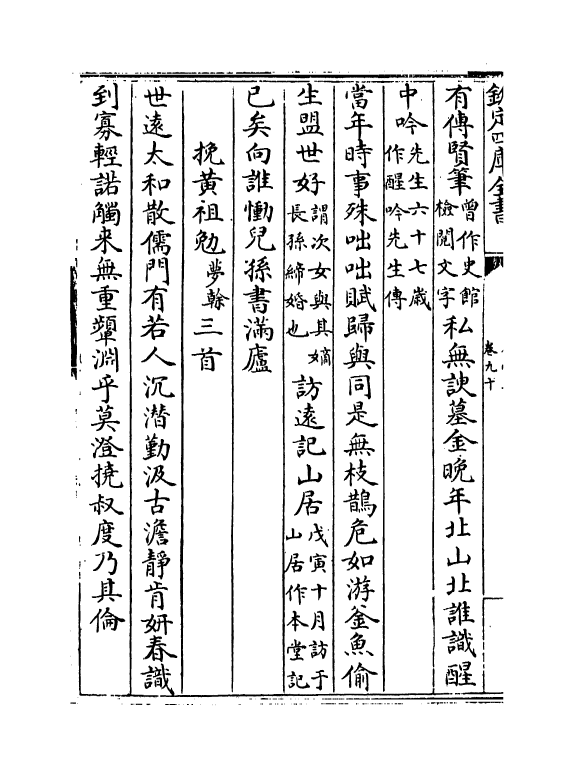 欽定四庫全書
卷九十
有傳賢筆曾作史館檢閲文字私無諛墓金晚年北山北誰識醒
中吟先生六十七歳作醒吟先生傳
當年時事殊咄咄賦歸與同是無枝鵲危如游釡魚偷
生盟世好謂次女與其嫡長孫締婚也訪遠記山居戊寅十月訪于山居作本堂記
已矣向誰慟兒孫書滿廬
挽黄祖勉夢榦三首
世遠太和散儒門有若人沉潛勤汲古澹靜肯妍春識
到寡輕諾觸来無重顰淵乎莫澄撓叔度乃其倫